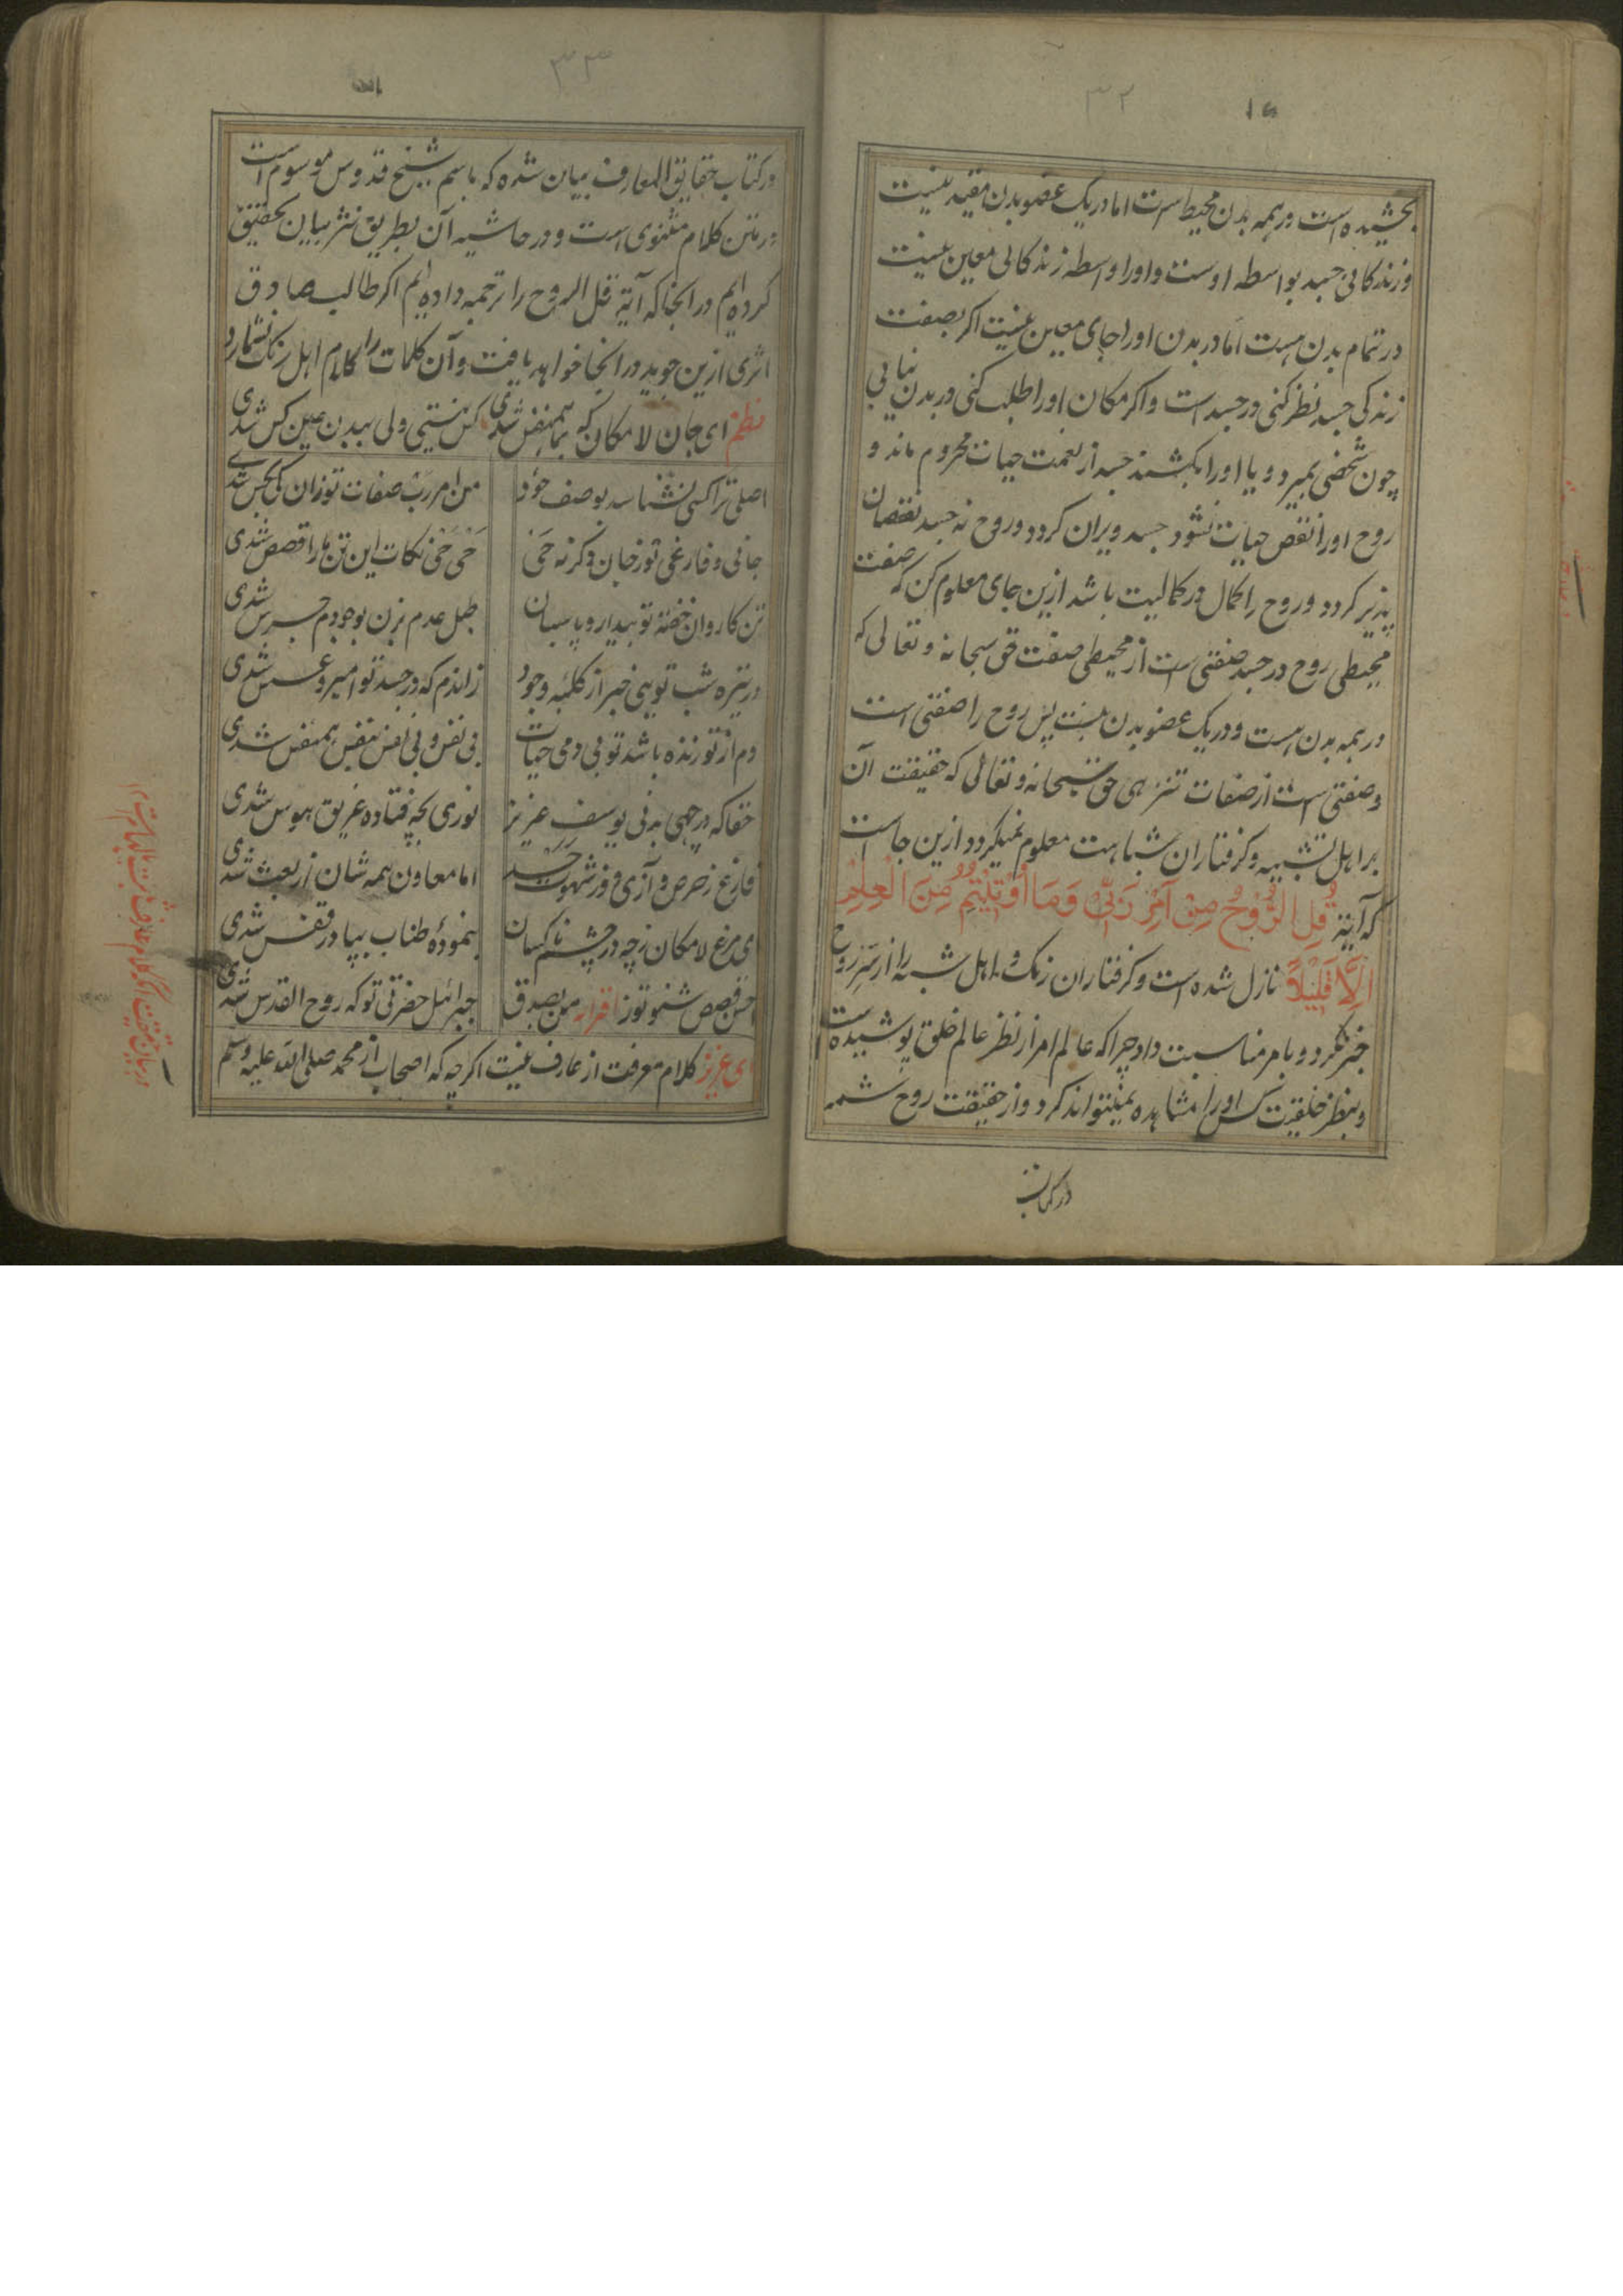 ۳۲
بخشیده است در همه بدن محیط است اما در یک عضو بدن مقید نیست
و زندگانی جسد بواسطه اوست و او را واسطه زندگانی معین نیست
در تمام بدن هست اما در بدن او را جای معین نیست اگر بصفت
زندگی جسد نظر کنی در جسد است و اگر مکان او را طلب کنی در بدن نیابی
چون شخصی بمیرد و یا او را بکشند جسد از نعمت حیات محروم ماند و
روح او را نقص حیات نشود جسد ویران گردد و روح نه جسد نقصان
پذیر گردد و روح را کمال در کمالیت باشد ازین جای معلوم کن که صفت
محیطی روح در جسد صفتی است از محیطی صفت حق سبحانه و تعالی که
در همه بدن هست و در یک عضو بدن نیست پس روح را صفتی است
و صفتی است از صفات تنزهی حق سبحانه و تعالی که حقیقت آن
بر اهل تشبیه و گرفتاران شباهت معلوم نمیگردد ازین جاست
که آیة قُلِ الرُّوحُ مِنْ اَمْرِ رَبِّی وَمَا اُوْتِیْتُمْ مِنَ الْعِلْمِ
اِلَّا قَلِیْلًا نازل شده است و گرفتاران رنگ و اهل شبه را از سر روح
خبر نکرد و بامر مناسبت داد چرا که عالم امر از نظر عالم خلق پوشیده است
و بنظر خلقیت کس او را مشاهده نمیتواند کرد و از حقیقت روح شمه
در کتاب
۳۳
در کتاب حقایق المعارف بیان شده که باسم شیخ قدوس موسوم است
در متن کلام مثنوی است و در حاشیه آن بطریق نثر بیان تحقیق
کرده ایم در انجا که آیة قل الروح را ترجمه داده ایم اگر طالب صادق
اثری ازین جوید در انجا خواهد یافت و آن کلمات را کلام اهل رنگ نشمارد
نظم ای جان لامکان که بما همنفس شدی کس نیستی ولی ببدن عین کس شدی
اصلی ترا کسی نشناسد بوصف خود من امر رب صفات تو زان کی بحس شدی
جانی و فارغی تو ز جان وگرنه حی حی حی نکات این تن ما را قصص شدی
تن کاروان خفته تو بیدار و پاسبان طبل عدم بزن بوجودم جرس شدی
در تیره شب توئی خبر از کلبه وجود زاندم که در جسد تو امیر و عسس شدی
دم از تو زنده باشد تو بی دمی حیات بی نفس و بی نفس بنفس همنفس شدی
حقا که در چهی بدنی یوسف عزیز نوری بچه فتاده غریق هوس شدی
فارغ ز حرص و آزی و ز شهوت جسد اما معاون همه شان از بعث شدی
ای مرغ لامکان ز چه در چشم ناکسان بنموده طناب بپا در قفس شدی
احسن قصص شنو تو ز اقرانه من بصدق جبرائیل حضرتی تو که روح القدس شدی
ای عزیز کلام معرفت از عارف نیست اگرچه که اصحاب از محمد صلی الله علیه وسلم